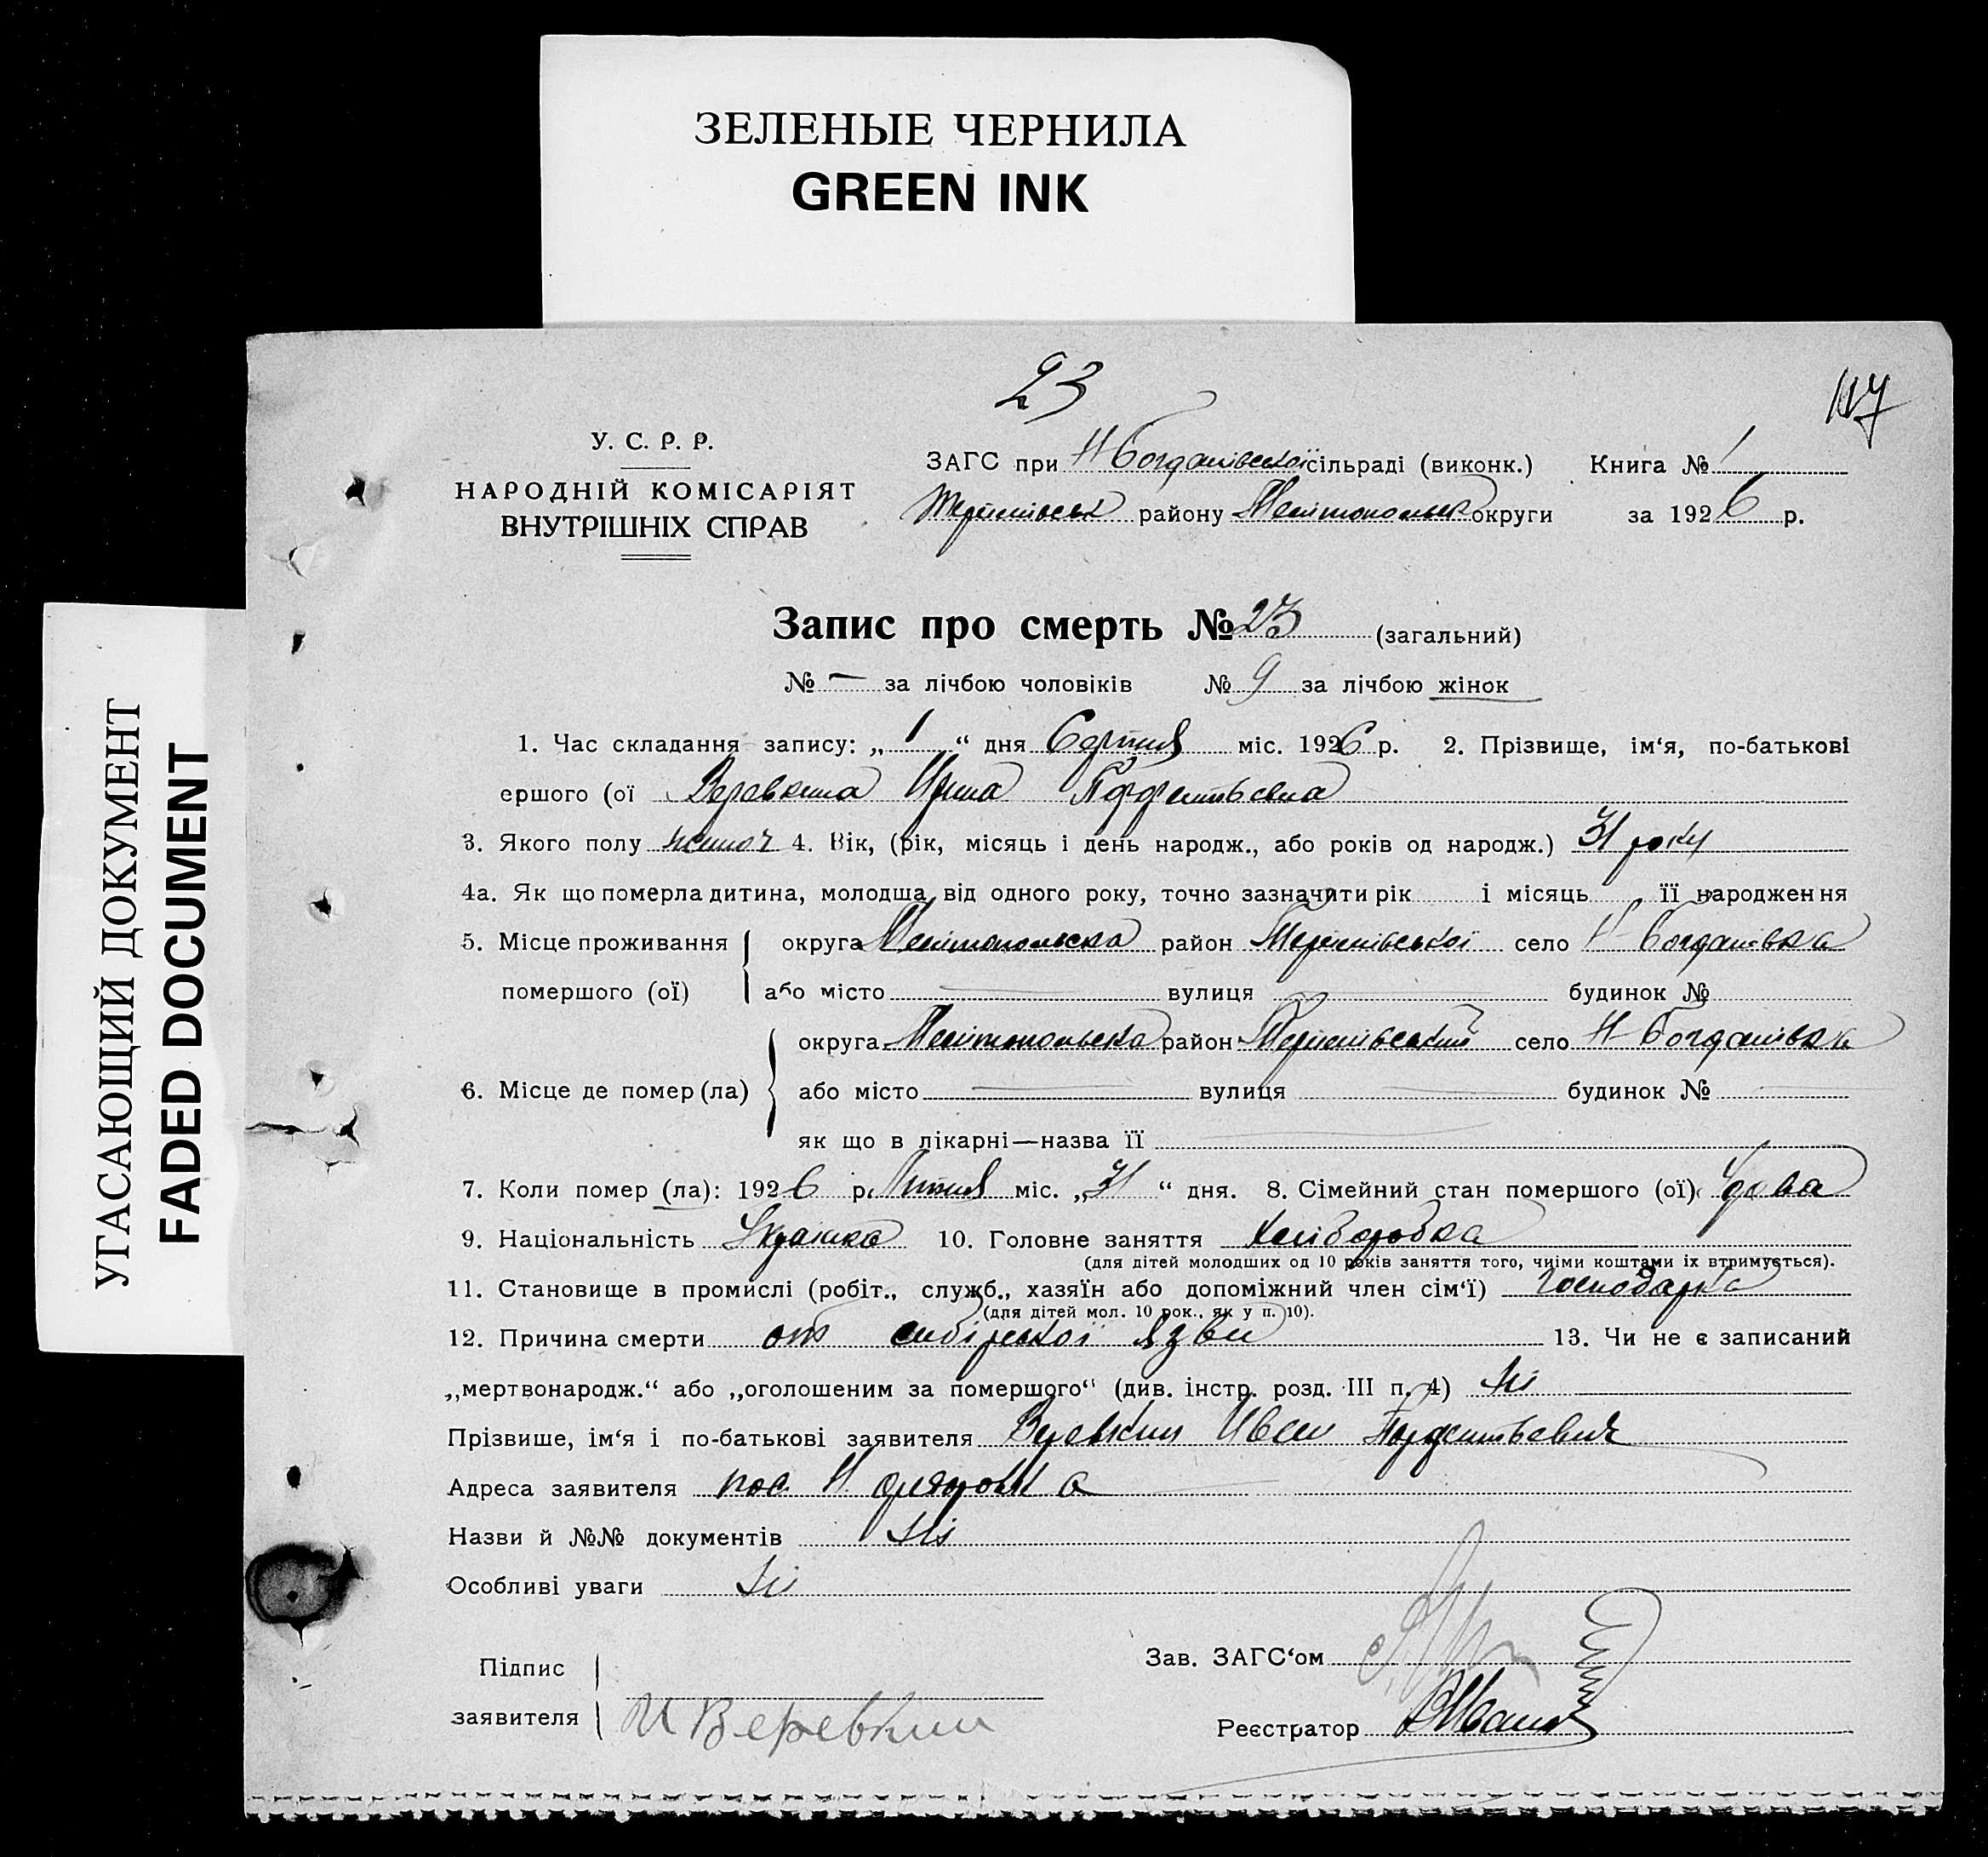 ЗЕЛЕНЫЕ ЧЕРНИЛА
GREEN INK
УГАСАЮЩИЙ ДОКУМЕНТ
FADED DOCUMENT
23
117
У. С. Р. Р.
НАРОДНІЙ КОМІСАРІЯТ
ВНУТРІШНІХ СПРАВ
ЗАГС при Н Богданівської сільраді (виконк.) Книга № 1
району Мелітопольск округи за 1926 р.
Запис про смерть № 23 (загальний)
№ — за лічбою чоловіків № 9 за лічбою жінок
1. Час складання запису: „ 1 “ дня Серпня міс. 1926 р. 2. Прізвище, ім‘я, по-батькові
ершого (ої Веревкина Ирина
3. Якого полу жіноч 4. Вік, (рік, місяць і день народж., або років од народж.) 31 року
4а. Як що померла дитина, молодша від одного року, точно зазначити рік і місяць її народження
5. Місце проживання округа Мелітопольска район Терпінівської село Н-Богданівка
помершого (ої) або місто вулиця будинок №
округа Мелітопольска район Терпінівский село Н-Богданівка
6. Місце де помер (ла) або місто вулиця будинок №
як що в лікарні—назва її
7. Коли помер (ла): 1926 р. Липня міс. „ 31 “ дня. 8. Сімейний стан помершого (ої) Удова
9. Національність Украінка 10. Головне заняття Хліборобка
(для дітей молодших од 10 років заняття того, чиїми коштами їх втримується).
11. Становище в промислі (робіт., служб., хазяїн або допоміжний член сім‘ї) господарка
(для дітей мол. 10 рок., як у п. 10).
12. Причина смерти от сибірської язви 13. Чи не є записаний
„мертвонародж.“ або „оголошеним за помершого“ (див. інстр. розд. III п. 4) Ні
Прізвише, ім‘я і по-батькові заявителя Веревкин Иван
Адреса заявителя пос. Н
Назви й №№ документів Ні
Особливі уваги Ні
Зав. ЗАГС‘ом
Підпис
заявителя И Веревкин
Реєстратор